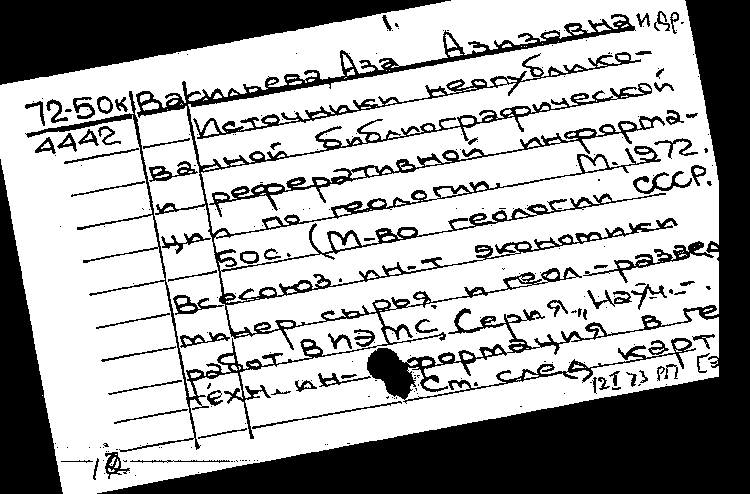 1.
72-50к Васильева, Аза Азизовна и др.
4442 Источники неопублико-
ванной библиографической
и реферативной информа-
ции по геологии. М., 1972.
50с. (М-во геологии СССР.
Всесоюз. ин-т экономики
минер. сырья и геол.-развед.
работ. ВИЭМС. Серия „Науч.-.
техн. ин-формация в ге
См. след. карт
12 I 73 РП [Э